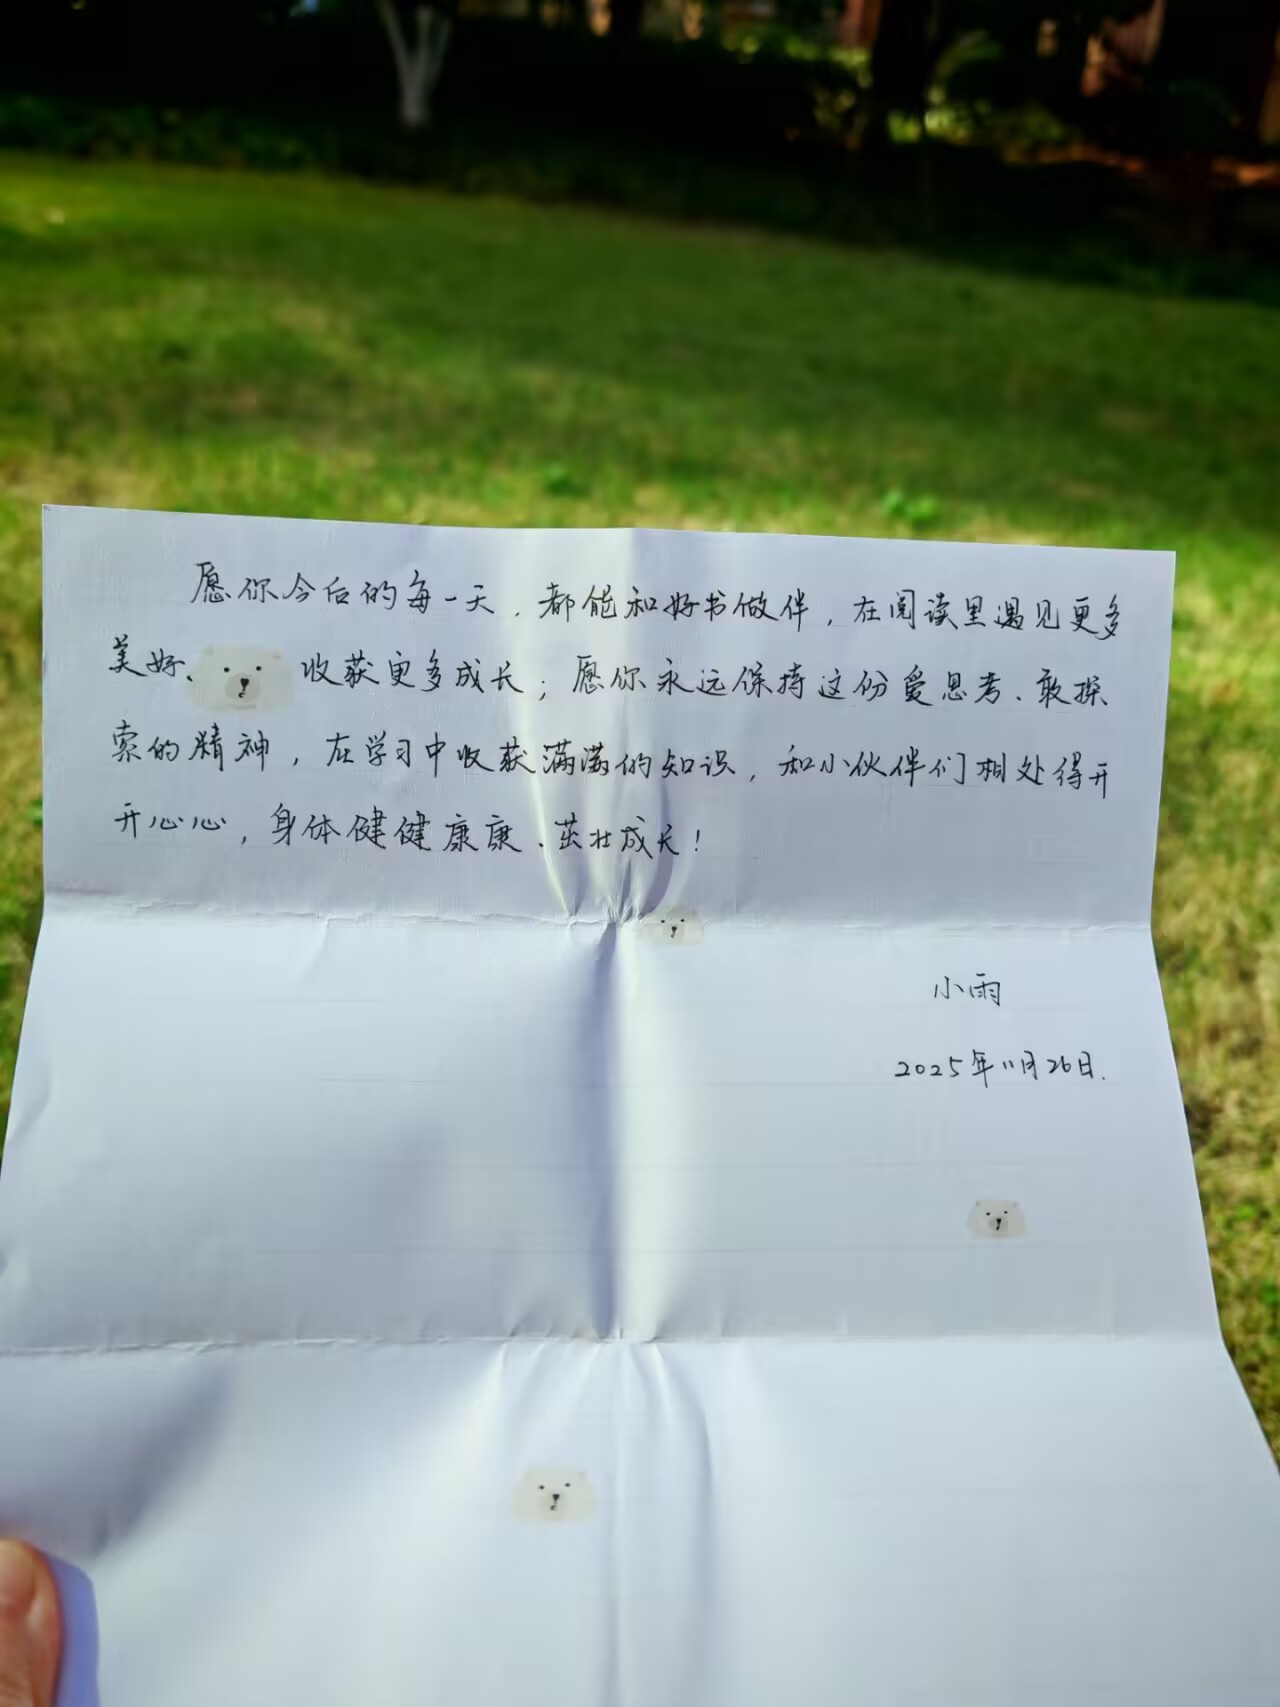 愿你今后的每一天，都能和好书做伴，在阅读里遇见更多
美好、收获更多成长；愿你永远保持这份爱思考、敢探
索的精神，在学习中收获满满的知识，和小伙伴们相处得开
开心心，身体健健康康、茁壮成长！
小雨
2025年11月26日.